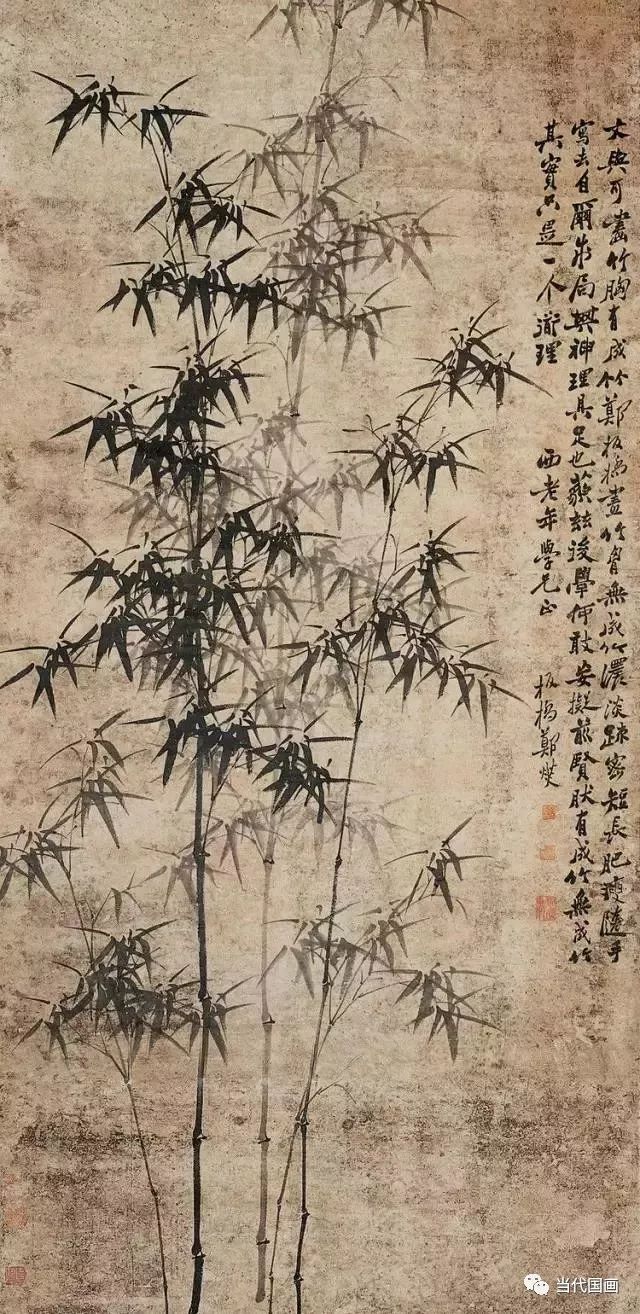 文與可畫竹胸有成竹鄭板橋畫竹胷無成竹濃淡踈密短長肥瘦隨手
寫去自爾成局其神理具足也藐茲後學何敢妄擬前賢肰有成竹無成竹
其實只是一个道理
老年學兄正
板橋鄭燮
当代国画